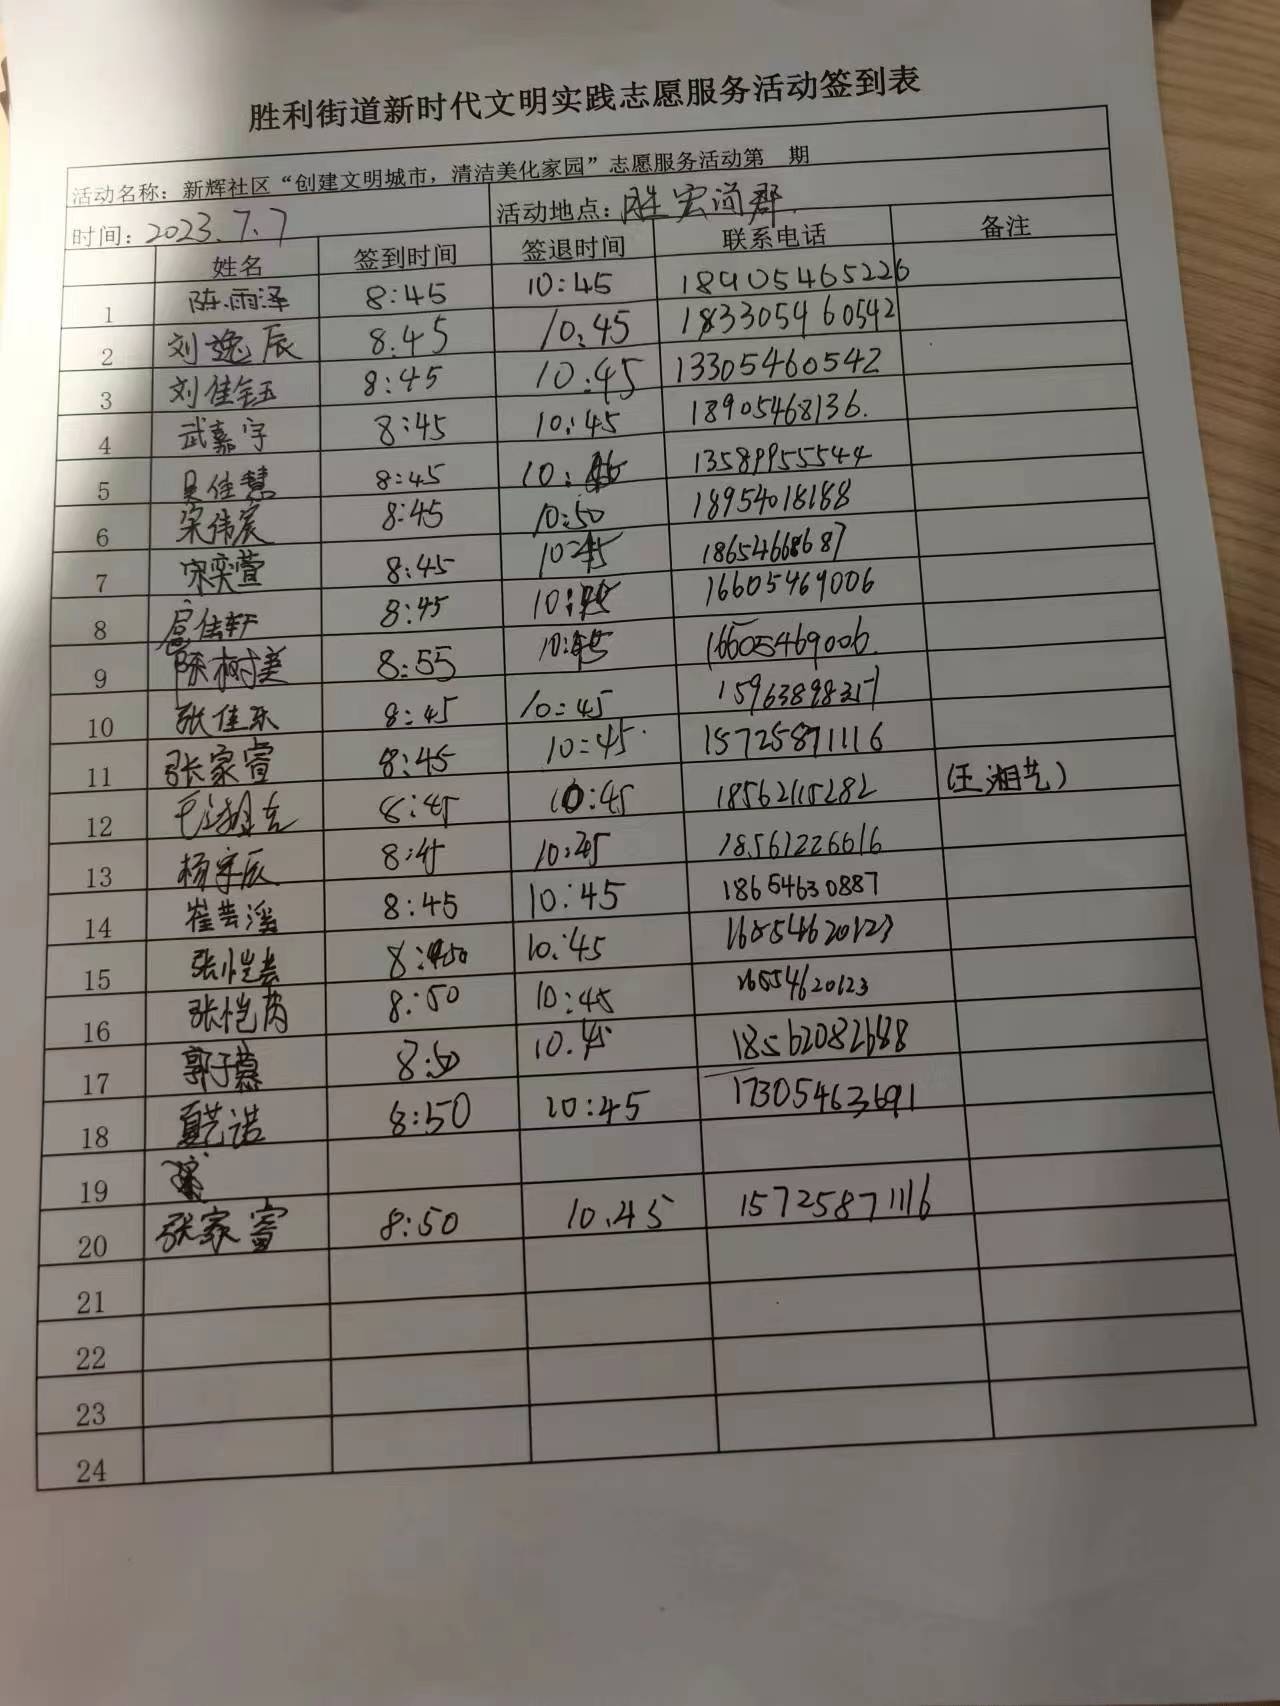 胜利街道新时代文明实践志愿服务活动签到表
活动名称：新辉社区“创建文明城市，清洁美化家园”志愿服务活动第 期
时间：2023.7.7 活动地点：胜宏简郡
姓名 签到时间 签退时间 联系电话 备注
1 陈雨泽 8:45 10:45 18905465226
2 刘逸辰 8.45 10.45 183305460542
3 刘佳钰 8:45 10:45 13305460542
4 武嘉宇 8:45 10:45 18905468136.
5 吴佳慧 8:45 10: 13589955544
6 宋伟宸 8:45 10:50 18954018188
7 宋奕萱 8:45 1045 18654668687
8 佳轩 8:45 10:45 16605469006
9 陈树美 8:55 10:45 16605469006
10 张佳乐 8:45 10:45 15963898317
11 张家睿 8:45 10:45 15725871116
12 8:45 10:45 18562115282 (王湘艺)
13 杨宇辰 8:45 10:45 18561226616
14 崔芸溪 8:45 10:45 18654630887
15 张恺芸 8:50 10:45 16554620123
16 张恺芮 8:50 10:45 16554620123
17 郭子慕 8:50 10.45 18562082688
18 夏艺诺 8:50 10:45 17305463691
19
20 张家睿 8:50 10.45 15725871116
21
22
23
24